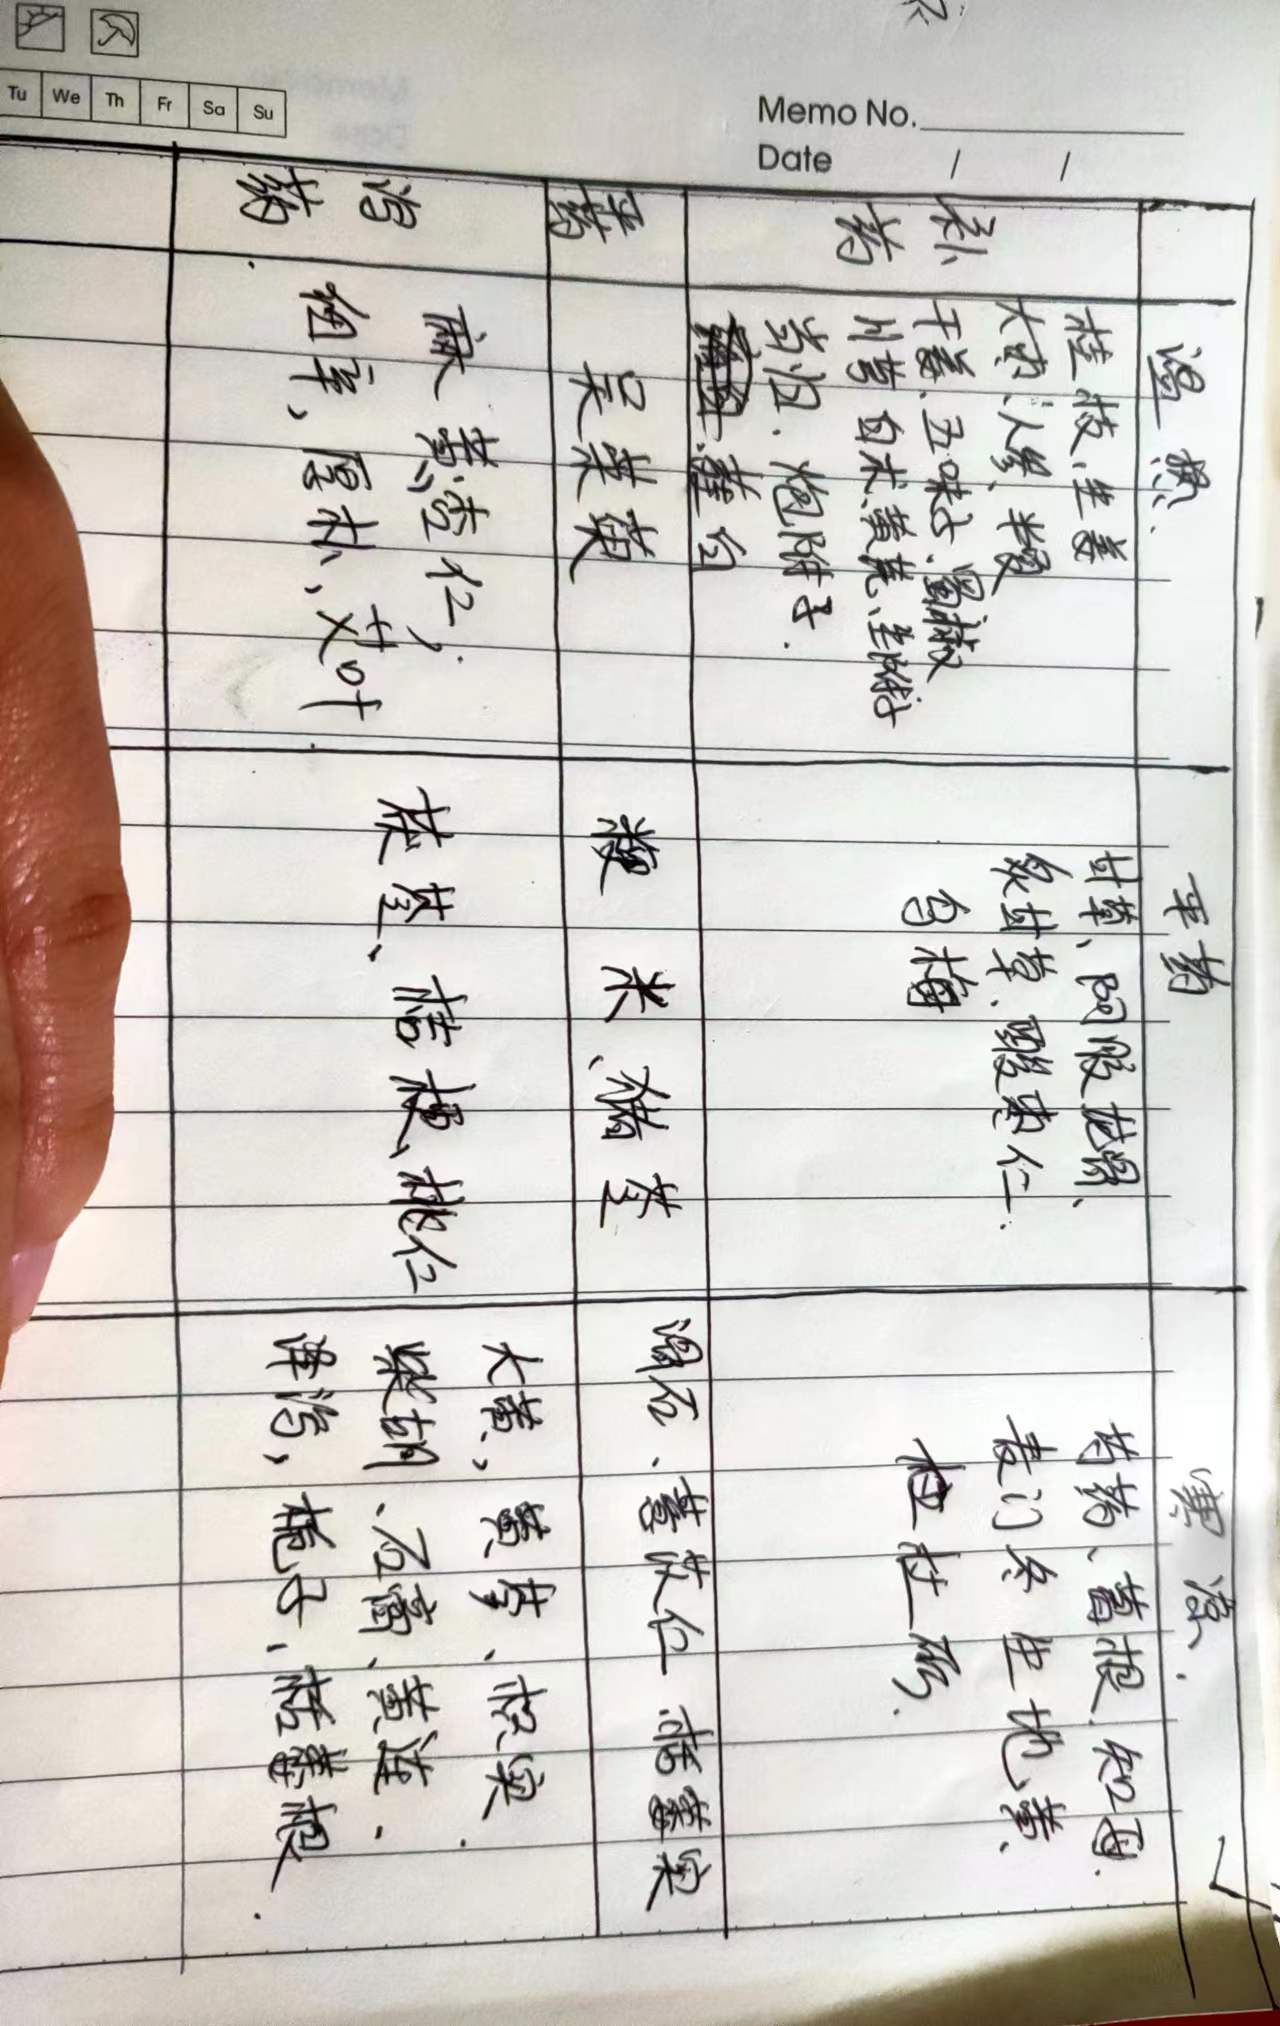 Tu We Th Fr Sa Su
Memo No.
Date / /
温 热
平药
寒 凉
补药
桂枝、生姜
大枣、人参、半夏
干姜、五味子、蜀椒
川芎 白术 黄芪、生附子
当归、炮附子
薤白
甘草、阿胶 龙眼、
炙甘草、酸枣仁
乌梅
芍药、葛根 知母
麦门冬 生地黄、
牡牡蛎
平药
吴茱萸
粳 米、猪苓
滑石、薏苡仁 栝蒌实
泻药
麻黄、杏仁、
细辛、厚朴、艾叶
茯苓、桔梗、桃仁
大黄、黄芩、枳实
柴胡、石膏、黄连、
泽泻、栀子、栝蒌根